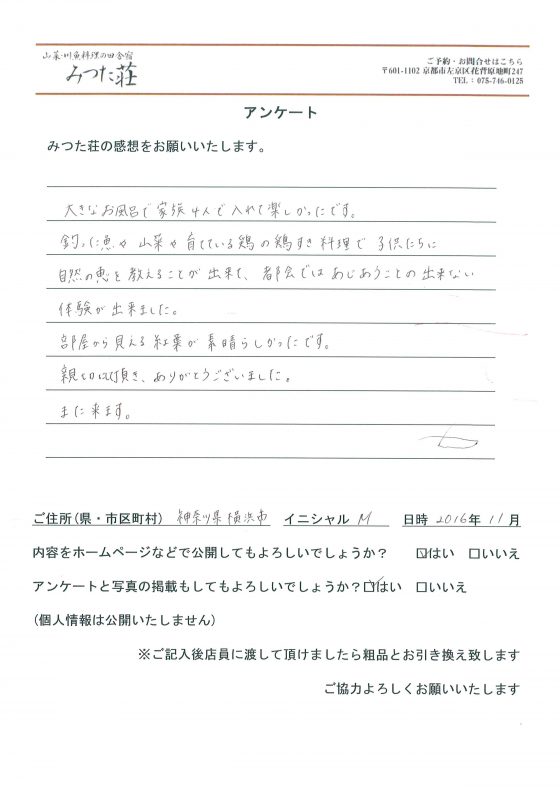 山菜・川魚料理の田舎宿
みつた荘
ご予約・お問合せはこちら
〒601-1102 京都市左京区花脊原地町247
TEL：075-746-0125
アンケート
みつた荘の感想をお願いいたします。
大きなお風呂で家族4人で入れて楽しかったです。
釣った魚や山菜や育てている鶏の鶏すき料理で子供たちに
自然の恵を教えることが出来て、都会ではあじあうことの出来ない
体験が出来ました。
部屋から見える紅葉が素晴らしかったです。
親切頂き、ありがとうございました。
また来ます。
ご住所(県・市区町村) 神奈川県横浜市 イニシャル M 日時 2016年 11月
内容をホームページなどで公開してもよろしいでしょうか？ ☑はい □いいえ
アンケートと写真の掲載もしてもよろしいでしょうか？☑はい □いいえ
(個人情報は公開いたしません)
※ご記入後店員に渡して頂けましたら粗品とお引き換え致します
ご協力よろしくお願いいたします